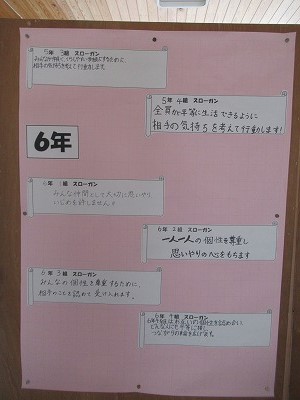 5年 3組 スローガン
相手の気持ちを考えて行動します。
5年 4組 スローガン
全員が平等に生活できるように
相手の気持ちを考えて行動します!
6年
6年 1組 スローガン
みんな仲間として大切に思いやり
いじめを許しません!
6年 2組 スローガン
一人一人の個性を尊重し
思いやりの心をもちます
6年 3組 スローガン
みんなの個性を尊重するために、
相手のことを認めて受け入れます。
6年 4組 スローガン